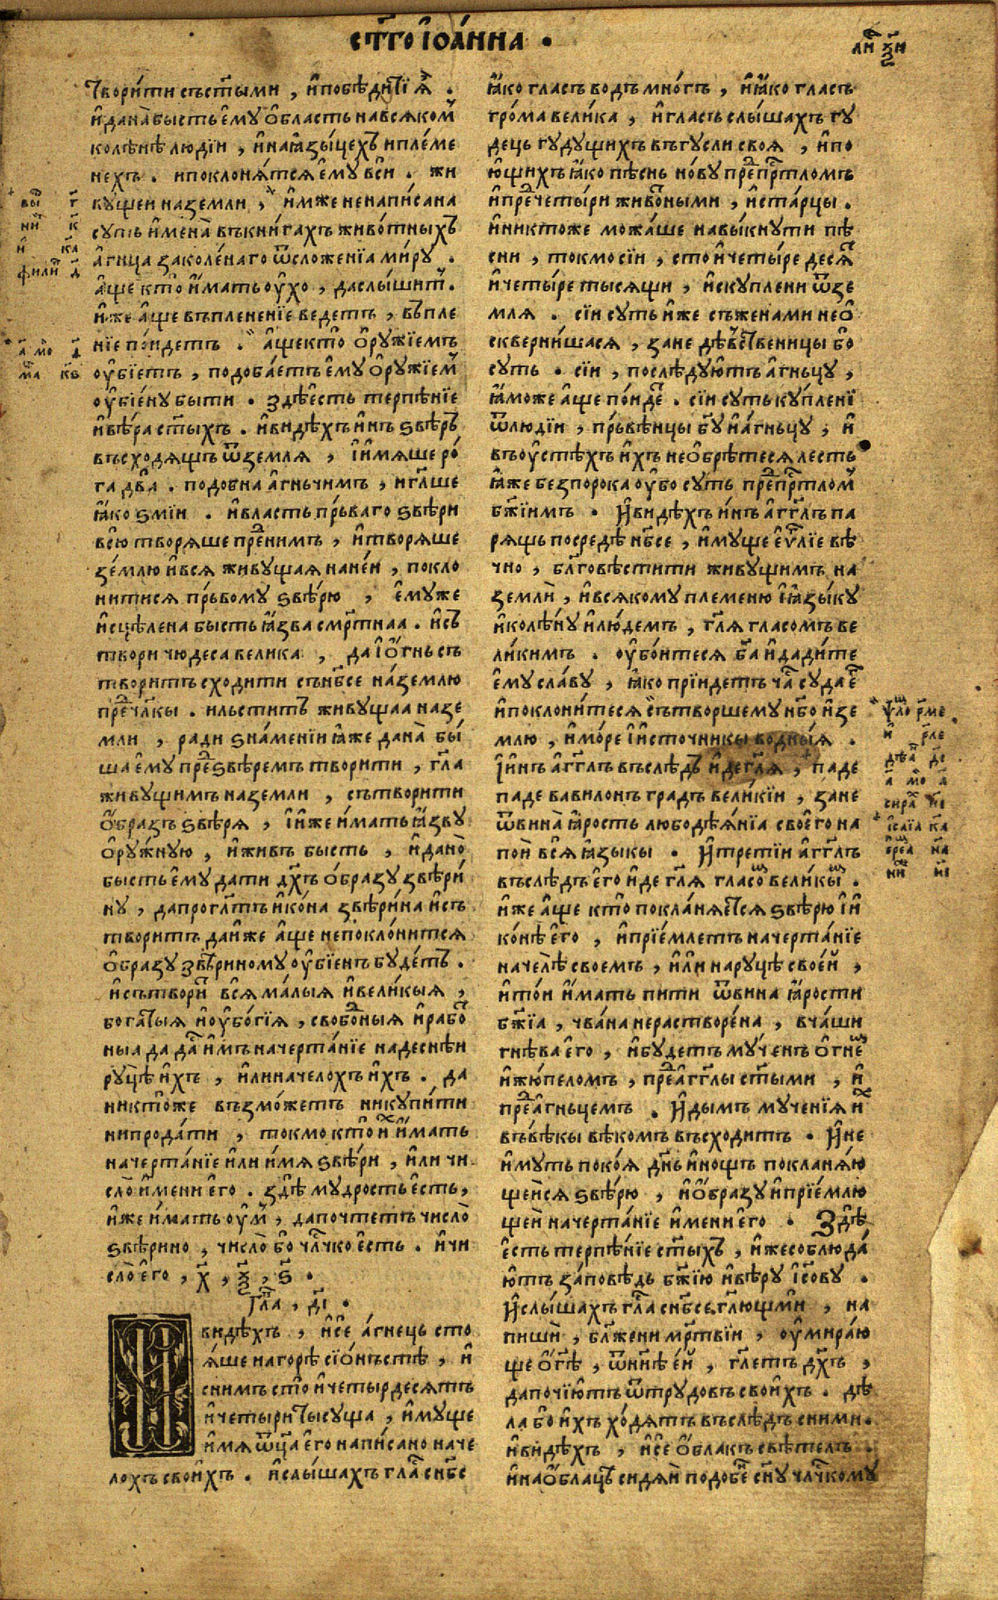 ст҃го іѡа́нна .
ли҃ ѯ҃и
твори́ти съст҃ыми , и҆побѣди́ти ѧ҆̀ .
и҆дана̀ бысть є҆му о҆бласть на всѧком̾
колѣ́нѣ лю́дїи , и҆на ꙗ҆зы́цехъ и племе
нехъ . и поклонѧ́тсѧ є҆му вси . жи
вꙋщеи на земли , и҆мже не написана
сꙋть и҆мена̀ въ кни́гахъ живо́тныхъ
а҆́гнца заколе́наго ѿ сложе́нїа ми́рꙋ .
а҆́ще кто̀ и҆́мать ꙋ҆́хо , да слы́шит̾ .
и҆́же а҆́ще въ пленени́е ведетъ , въ пле
нїе по́идетъ . а҆́ще кто ѻ҆рꙋ́жїемъ
оу҆бїетъ , подоба́етъ є҆мꙋ ѻ҆рꙋ́жїем̾
оу҆бїе́нꙋ быти . здѣ є҆́сть терпѣ́нїе
и҆вѣ́ра ст҃ыхъ . и҆ви́дѣхъ и҆́нъ ѕвѣрь
въсходѧ́щъ ѿземлѧ , і҆и҆мѧше ро́
га два̀ . подобна а҆́гньчимъ , и҆ гл҃ше
ꙗ҆́ко ѕмїи . и҆власть пръваго ѕвѣ́ри
всю творѧше пре́д нимъ , и҆творѧ́ше
зе́млю и҆всѧ живꙋщаѧ на не́и , покло
нитисѧ пръвомꙋ ѕвѣ́рю , є҆мꙋже
и҆сцѣлена бысть ꙗ҆́зва смрт҃наа . и҆съ
твори чюдеса велика , да і҆ѻ҆́гнь съ
творитъ сходи́ти съ нб҃се на землю
пред̾ чл҃кы . и льститъ живꙋщаа на зе
мли , ради ѕна́менїи ꙗ҆́же дана̀ бы́
ша є҆мꙋ пред̾ ѕвѣремъ твори́ти , гл҃а
живꙋщимъ на земли , сътвори́ти
ѻ҆́бразъ ѕвѣрѧ , і҆и҆же и҆́мать ꙗ҆́звꙋ
ѻ҆рꙋ́жнꙋю , и҆живъ бысть , и҆дано̀
бысть є҆мꙋ дати дх҃ъ ѻ҆́бразꙋ звѣри́
нꙋ , да прогл҃тъ и҆ко́на звѣри́на и҆съ
творитъ да и҆же а҆́ще не покло́нитсѧ
ѻ҆́бразꙋ звѣ́риномꙋ оу҆бїенъ бꙋ́детъ .
и҆сътвори́ всѧ ма́лыѧ и҆вели́кыѧ ,
бога́тыѧ и҆оу҆бо́гїѧ , свобо́дныѧ и҆рабо́
ныа да да́ст̾ и҆́мъ начерта́нїе на деснѣ́и
рꙋцѣ и҆́хъ , и҆ли на челохъ и҆́хъ . да
никто́же възмо́жетъ ни кꙋпи́ти
ни прода́ти , токмо кто̀ и҆́мать
начерта́нїе и҆ли и҆мѧ ѕвѣ́ри , и҆ли чи
сло̀ и҆́мени є҆го . здѣ̀ мꙋ́дрость є҆сть ,
и҆́же и҆́мать оу҆м̾ , да почтетъ число̀
ѕвѣ́рино , число̀ бо чл҃чко є҆сть . и҆чи
сло̀ є҆го , х҃ , ѯ҃ , ѕ҃ .
гла҃ , д҃і .
И видѣхъ , и҆сѐ а҆́гнець сто
ѧ҆́ше на горѣ сїѡ́нъстѣ , и҆
с нимъ сто̀ и҆четырдесѧтъ
и҆четыри ты́сꙋща , и҆мꙋще
и҆мѧ ѿц҃а є҆го написано на че
лохъ свои́хъ . и҆слы́шахъ гла́с̾ с нб҃се
ꙗ҆́ко гласъ водъ мно́гъ , и҆ꙗ҆́ко гласъ
гро́ма вели́ка , и҆гласъ слы́шахъ гꙋ
дець гꙋдꙋщихъ въ гꙋсли своѧ , и҆по
ю́щихъ ꙗ҆́ко пѣснь но́вꙋ пред̾ прт҃ломъ
и҆пред̾ четы́ри живо́тными , и҆ста́рцы .
и҆никтоже можа́ше навы́кнꙋти пѣ́
сни , токмо сїи , сто и҆четы́ре десѧ́т̾
и҆четы́ре тысѧщи , и҆скꙋплени ѿзе
млѧ . сїи сꙋть и҆же съ женами не ѡ҆
скверни́шасѧ , зане дѣ́вственицы бо
сꙋть . сїи , послѣ́дꙋютъ а҆́гньцꙋ ,
ꙗ҆́може а҆́ще по́иде́т̾ . сїи сꙋть кꙋ́пленї
ѿ людїи , пръвѣ́нцы бг҃ꙋ и҆ а҆́гньцꙋ ; и҆
въ оу҆стѣ́хъ и҆́хъ не ѡ҆брѣ́тесѧ лесть
ꙗ҆́же безпорока оу҆бо сꙋть пред̾ прт҃лом̾
бж҃їимъ . И҆ви́дѣхъ и҆нъ а҆гг҃лъ па
рѧщъ посредѣ нб҃се , и҆мꙋще є҆ѵ҃лїе вѣ́
чно , бл҃говѣсти́ти живꙋщимъ на
земли̂ , и҆всѧкомꙋ племеню і҆ꙗ҆зы́кꙋ
и҆колѣ́нꙋ и҆лю́демъ , гл҃ѧ гласомъ ве
ли́кимъ . оу҆бо́итесѧ бг҃а и҆дади́те
є҆мꙋ сла́вꙋ , ꙗ҆́ко прїидетъ ча́с̾ сꙋда є҆г̾
и҆поклони́тесѧ сътворшемꙋ нб҃о и҆зе
млю , и҆мо́ре і҆и҆сто́чникы во́дныѧ .
І҆и҆нъ а҆́гг҃лъ въслѣдъ и҆́де гл҃ѧ , паде
паде вавилонъ градъ вели́кїи , зане
ѿ вина̀ ꙗ҆рость любодѣѧ́нїа своего на
пои̂ всѧ̂ ꙗ҆зы́кы . И҆третїи а҆́гг҃лъ
въслѣдъ є҆го и҆́де гл҃ѧ гласом̾ вели́кым̾ .
и҆́же а҆́ще кто̀ поклан́ѧетсѧ ѕвѣрю і҆и҆
ко́нѣ є҆го , и҆прїе́млетъ начерта́нїе
на челѣ̀ своемъ , и҆́ли на рꙋцѣ свое́й ,
и҆то́и и҆́мать пити ѿ вина ꙗ҆́рости
бж҃їа , чва́на нерастворе́на , в ча́ши
гнѣ́ва є҆го , и҆бꙋдетъ мꙋ́ченъ ѻ҆гнем̾
и҆жю́пеломъ , пред̾ а҆гг҃лы ст҃ыми , и҆
пред̾ а҆гньцемъ . И҆ дымъ мꙋченїѧ и҆х̾
въ вѣ́кы вѣкомъ въсхо́дитъ . И҆ не
и҆мꙋть поко́ѧ дн҃ь и҆нощъ поклан́ѧю
щеисѧ ѕвѣ́рю , и҆ѻ҆́бразꙋ и҆прїе́млю
щеи начерта́нїе и҆мени є҆го . Здѣ̀
є҆сть терпѣ́нїе ст҃ыхъ , и҆же соблюда́
ютъ за́повѣдь бж҃їю и҆вѣ́рꙋ і҆с҃овꙋ .
И҆слы́шахъ гла́с̾ с нб҃се гл҃ющь мѝ , на
пишѝ , бл҃жени мрт҃вїи , оу҆мира́ю
ще ѻ҆ г҃ѣ , ѿ нн҃ѣ є҆́й , гл҃етъ дх҃ъ ,
да почїю́тъ ѿ трꙋдовъ свои́хъ . дѣ
ла бо и҆́хъ хо́дѧтъ въслѣдъ с ними .
и҆видѣхъ , и҆се ѻ҆́блакъ свѣ́телъ .
и҆на ѻ҆́блацѣ сидѧ̀й подобен̾ сн҃ꙋ чл҃чкомꙋ